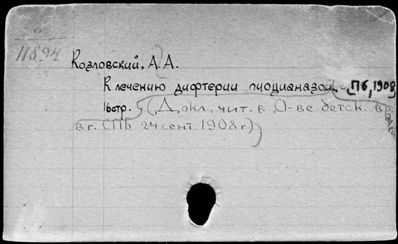 11894
Козловский, А. А.
К лечению дифтерии пиоцианазой. Пб, 1908
16стр. (Докл., чит. в О-ве детск. врачей
в г. СПб 24 сент. 1908 г.)